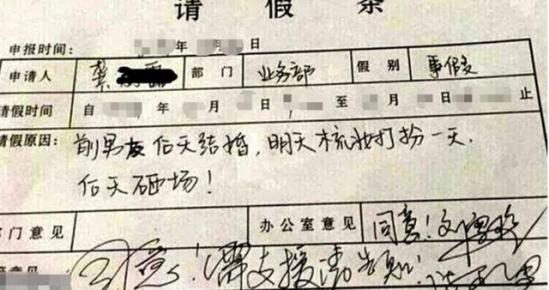 请假条
申报时间： 年 日
申请人 龚 部门 业务部 假别 事假
请假时间 自 年 月 至 月 止
请假原因： 前男友后天结婚，明天梳妆打扮一天，
后天砸场！
部门意见 办公室意见 同意！
同意！需支援请告知！